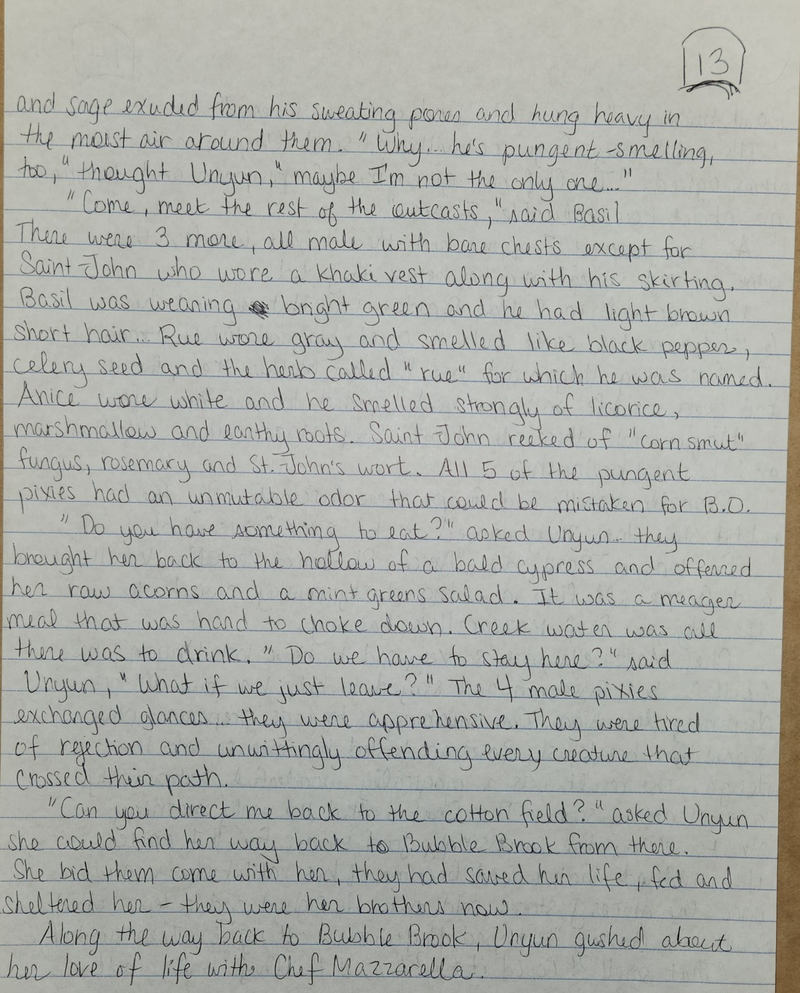 13
and sage exuded from his sweating pores and hung heavy in
the moist air around them. "Why... he's pungent-smelling,
too," thought Unyun, "maybe I'm not the only one..."
"Come, meet the rest of the outcasts," said Basil
There were 3 more, all male with bare chests except for
Saint John who wore a khaki vest along with his skirting.
Basil was wearing bright green and he had light brown
short hair... Rue wore gray and smelled like black pepper,
celery seed and the herb called "rue" for which he was named.
Anice wore white and he smelled strongly of licorice,
marshmallow and earthy roots. Saint John reeked of "corn smut"
fungus, rosemary and St. John's wort. All 5 of the pungent
pixies had an unmutable odor that could be mistaken for B.O.
"Do you have something to eat?" asked Unyun... they
brought her back to the hollow of a bald cypress and offerred
her raw acorns and a mint greens salad. It was a meager
meal that was hard to choke down. Creek water was all
there was to drink. "Do we have to stay here?" said
Unyun, "What if we just leave?" The 4 male pixies
exchanged glances... they were apprehensive. They were tired
of rejection and unwittingly offending every creature that
crossed their path.
"Can you direct me back to the cotton field?" asked Unyun
she could find her way back to Bubble Brook from there.
She bid them come with her, they had saved her life, fed and
sheltered her - they were her brothers now.
Along the way back to Bubble Brook, Unyun gushed about
her love of life with Chef Mazzarella.